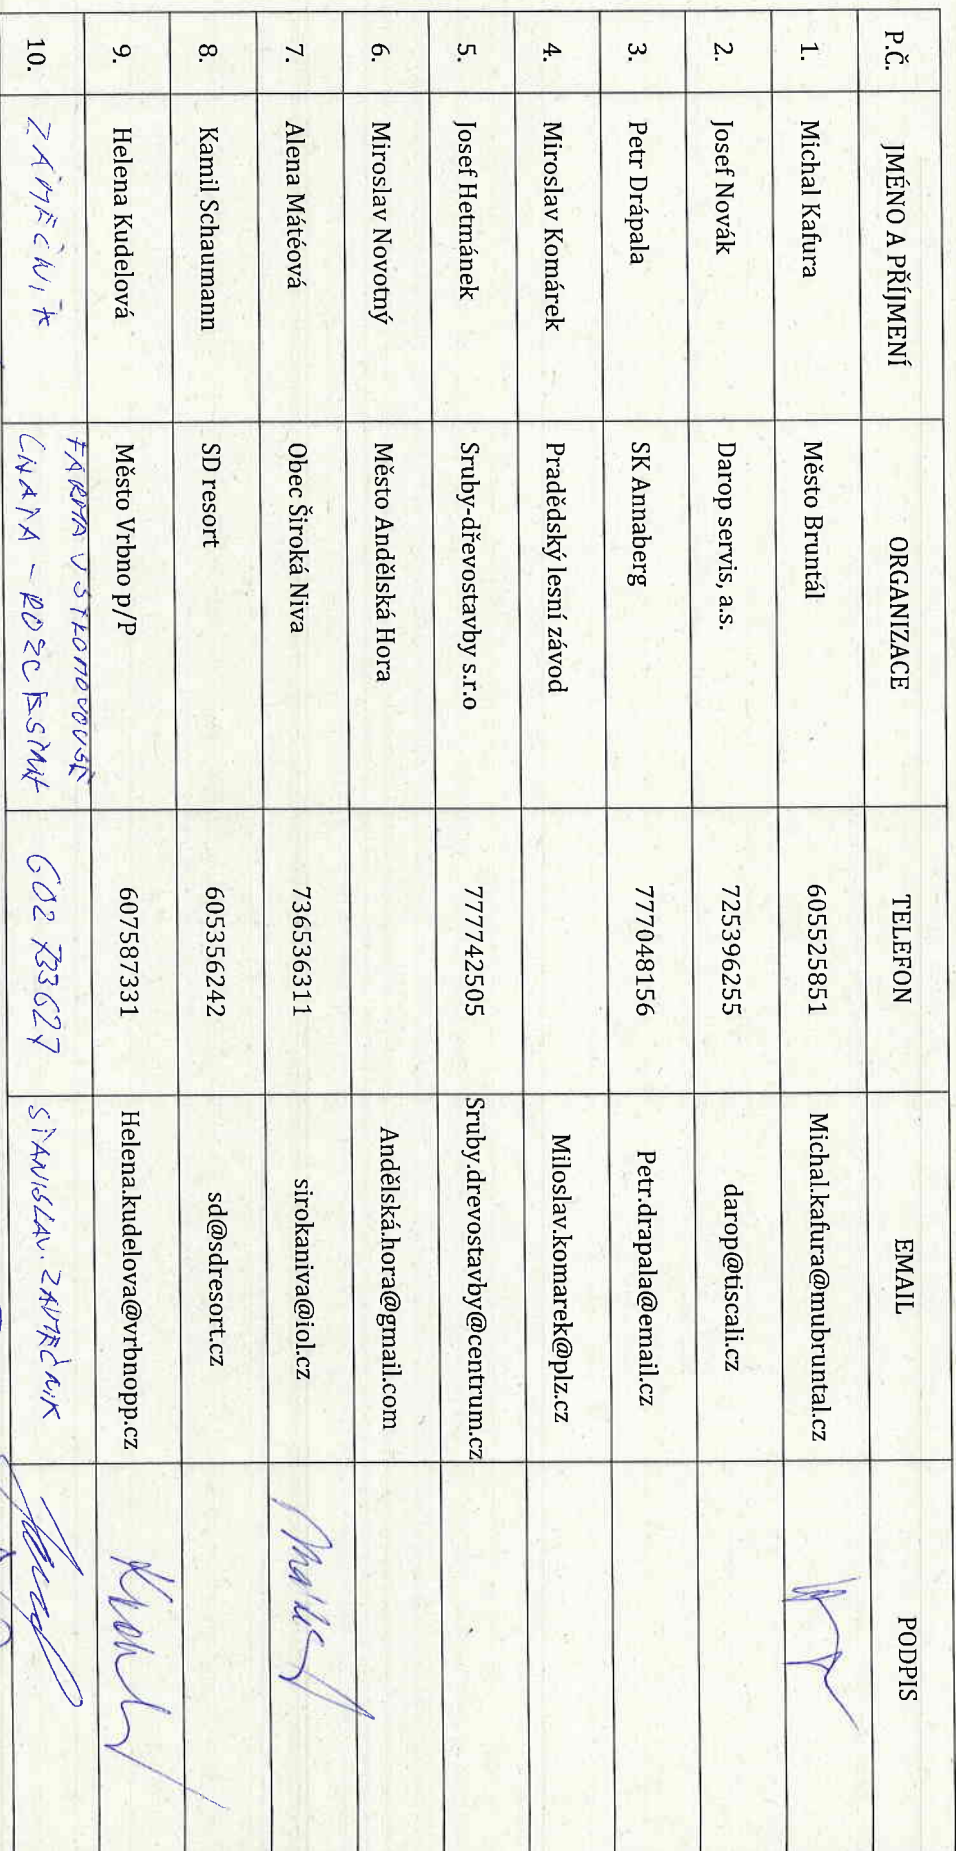 P.Č. JMÉNO A PŘÍJMENÍ ORGANIZACE TELEFON EMAIL PODPIS
1. Michal Kafura Město Bruntál 605525851 Michal.kafura@mubruntal.cz
2. Josef Novák Darop servis, a.s. 725396255 darop@tiscali.cz
3. Petr Drápala SK Annaberg 777048156 Petr.drapala@email.cz
4. Miroslav Komárek Pradědský lesní závod Miloslav.komarek@plz.cz
5. Josef Hetmánek Sruby-dřevostavby s.r.o 777742505 Sruby.drevostavby@centrum.cz
6. Miroslav Novotný Město Andělská Hora Andělská.hora@gmail.com
7. Alena Mátéová Obec Široká Niva 736536311 sirokaniva@iol.cz
8. Kamil Schaumann SD resort 605356242 sd@sdresort.cz
9. Helena Kudelová Město Vrbno p/P 607587331 Helena.kudelova@vrbnopp.cz
FARMA V
10. ZÁMEČNÍK 602 733627 STANISLAV.ZAMEČNIK